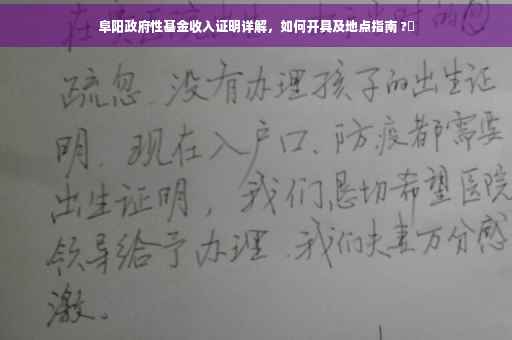 阜阳政府性基金收入证明详解，如何开具及地点指南 ?
疏忽.没有办理孩子的出生证
明.现在入户口、防疫都需要
出生证明，我们恳切希望医院
领导给予办理.我们夫妻万分感
激。